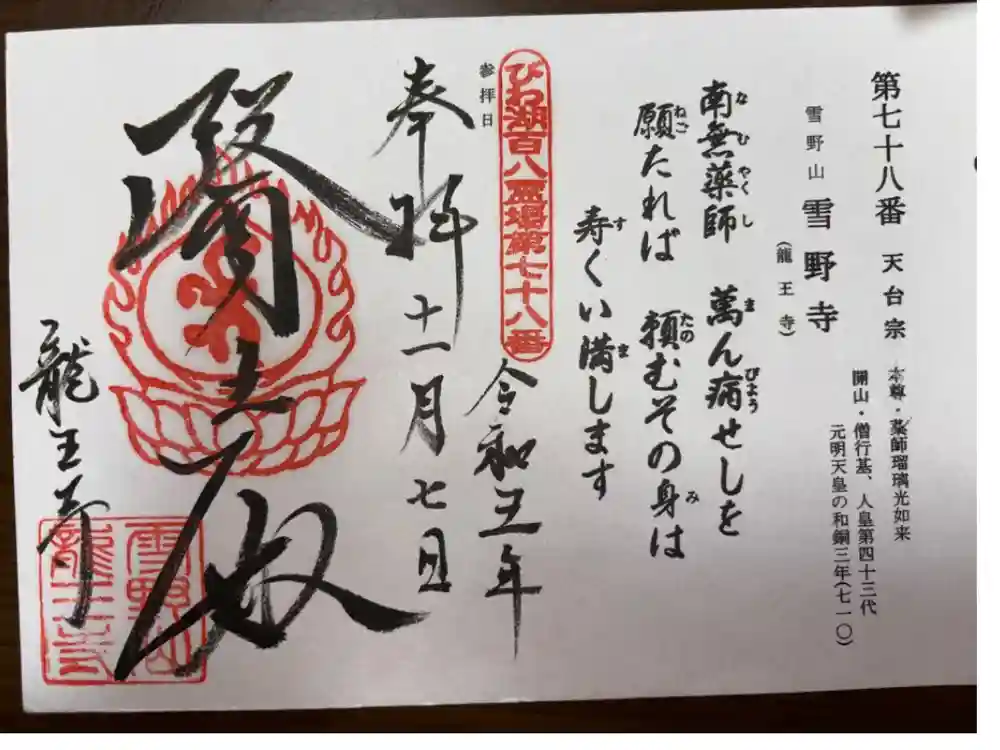 第七十八番 天台宗
本尊・薬師瑠璃光如来
開山・僧行基、人皇第四十三代
元明天皇の和銅三年(七一〇)
雪野山 雪野寺
(龍王寺)
南無薬師 萬ん病せしを
願たれば 頼むその身は
寿くい満します
びわ湖百八霊場第七十八番
参拝日
令和五年
十一月七日
奉拝
醫王殿
龍王寺
雪野山
龍王寺